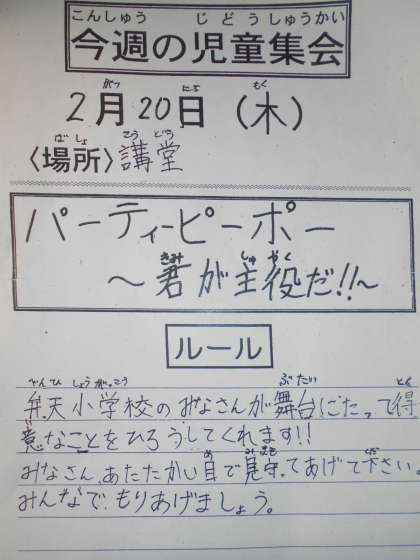 こんしゅう じどうしゅうかい
今週の児童集会
がつ にち もく
2月20日(木)
ばしょ こうどう
〈場所〉講堂
パーティーピーポー
きみ しゅやく
～君が主役だ!!～
ルール
べんてんしょうがっこう ぶたい とく
弁天小学校のみなさんが舞台にたって得
い
意なことをひろうしてくれます!!
め みまも くだ
みなさん、あたたかい目で見守ってあげて下さい。
みんなで、もりあげましょう。